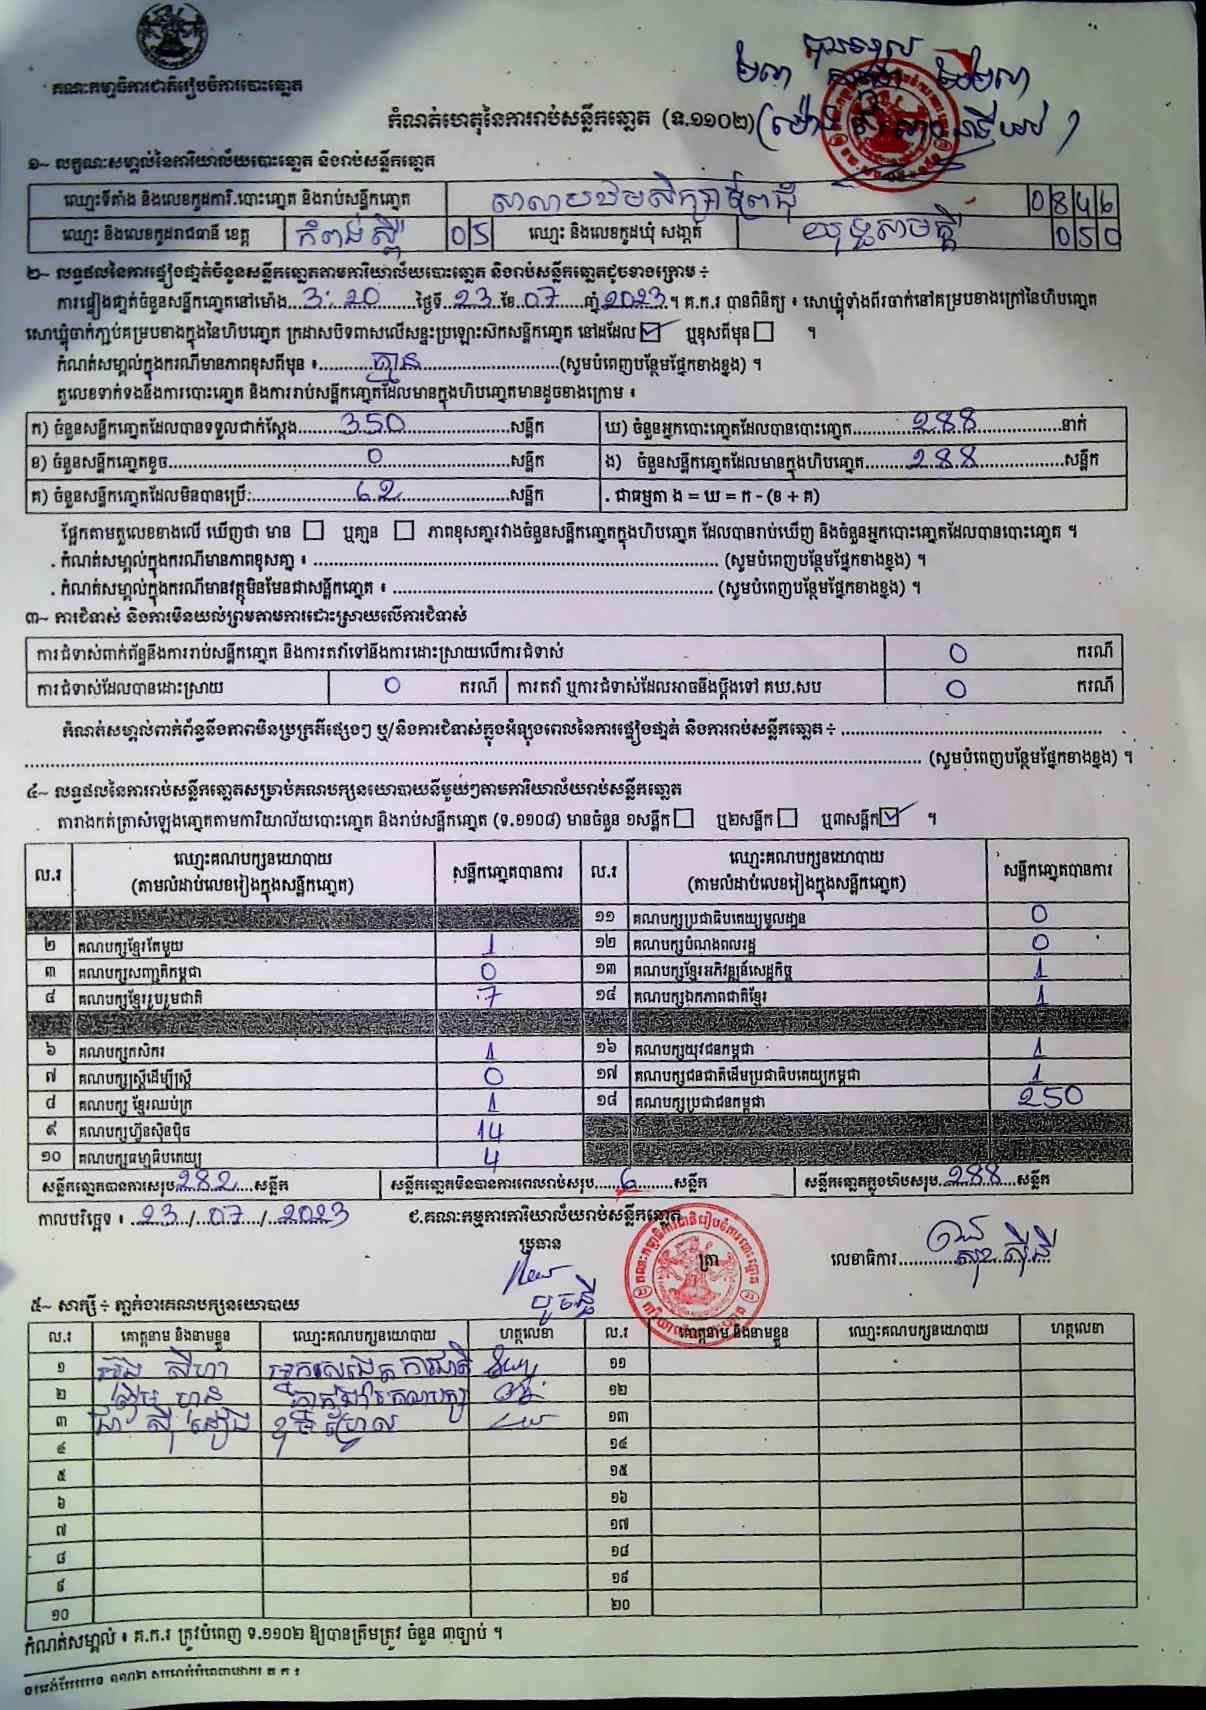 គណៈកម្មាធិការជាតិរៀបចំការបោះឆ្នោត
កំណត់ហេតុនៃការរាប់សន្លឹកឆ្នោត (ទ.១១០២)
១~ លក្ខណៈសម្គាល់នៃការិយាល័យបោះឆ្នោត និងរាប់សន្លឹកឆ្នោត
ឈ្មោះទីតាំង និងលេខកូដការិ.បោះឆ្នោត និងរាប់សន្លឹកឆ្នោត 0846
ឈ្មោះ និងលេខកូដរាជធានី ខេត្ត កំពង់ស្ពឺ 05 ឈ្មោះ និងលេខកូដឃុំ សង្កាត់ 050
២~ លទ្ធផលនៃការផ្ទៀងផ្ទាត់ចំនួនសន្លឹកឆ្នោតតាមការិយាល័យបោះឆ្នោត និងរាប់សន្លឹកឆ្នោតដូចខាងក្រោម ÷
ការផ្ទៀងផ្ទាត់ចំនួនសន្លឹកឆ្នោតនៅម៉ោង...3:20......ថ្ងៃទី..23..ខែ.07....ឆ្នាំ2023។ គ.ក.រ បានពិនិត្យ ៖ សោឃ្លុំទាំងពីរចាក់នៅគម្របខាងក្រៅនៃហិបឆ្នោត
សោឃ្លុំចាក់ភ្ជាប់គម្របខាងក្នុងនៃហិបឆ្នោត ក្រដាសបិទពាសលើសន្ទះប្រឡោះស៊កសន្លឹកឆ្នោត នៅដដែល ☑ ឬខុសពីមុន ☐ ។
កំណត់សម្គាល់ក្នុងករណីមានភាពខុសពីមុន ៖............គ្មាន............(សូមបំពេញបន្ថែមផ្នែកខាងខ្នង) ។
តួលេខទាក់ទងនឹងការបោះឆ្នោត និងការរាប់សន្លឹកឆ្នោតដែលមានក្នុងហិបឆ្នោតមានដូចខាងក្រោម ៖
ក) ចំនួនសន្លឹកឆ្នោតដែលបានទទួលជាក់ស្តែង......350......សន្លឹក ឃ) ចំនួនអ្នកបោះឆ្នោតដែលបានបោះឆ្នោត......288......នាក់
ខ) ចំនួនសន្លឹកឆ្នោតខូច......0......សន្លឹក ង) ចំនួនសន្លឹកឆ្នោតដែលមានក្នុងហិបឆ្នោត......288......សន្លឹក
គ) ចំនួនសន្លឹកឆ្នោតដែលមិនបានប្រើ......62......សន្លឹក . ជាធម្មតា ង = ឃ = ក - (ខ + គ)
ផ្អែកតាមតួលេខខាងលើ ឃើញថា មាន ☐ ឬគ្មាន ☐ ភាពខុសគ្នារវាងចំនួនសន្លឹកឆ្នោតក្នុងហិបឆ្នោត ដែលបានរាប់ឃើញ និងចំនួនអ្នកបោះឆ្នោតដែលបានបោះឆ្នោត ។
. កំណត់សម្គាល់ក្នុងករណីមានភាពខុសគ្នា ៖ ............ (សូមបំពេញបន្ថែមផ្នែកខាងខ្នង) ។
. កំណត់សម្គាល់ក្នុងករណីមានវត្ថុមិនមែនជាសន្លឹកឆ្នោត ៖ ............ (សូមបំពេញបន្ថែមផ្នែកខាងខ្នង) ។
៣~ ការជំទាស់ និងការមិនយល់ព្រមតាមការដោះស្រាយលើការជំទាស់
ការជំទាស់ពាក់ព័ន្ធនឹងការរាប់សន្លឹកឆ្នោត និងការតវ៉ាទៅនឹងការដោះស្រាយលើការជំទាស់ 0 ករណី
ការជំទាស់ដែលបានដោះស្រាយ 0 ករណី ការតវ៉ា ឬការជំទាស់ដែលអាចនឹងប្តឹងទៅ គឃ.សប 0 ករណី
កំណត់សម្គាល់ពាក់ព័ន្ធនឹងភាពមិនប្រក្រតីផ្សេងៗ ឬ/និងការជំទាស់ក្នុងអំឡុងពេលនៃការផ្ទៀងផ្ទាត់ និងការរាប់សន្លឹកឆ្នោត÷ ............
............ (សូមបំពេញបន្ថែមផ្នែកខាងខ្នង) ។
៤~ លទ្ធផលនៃការរាប់សន្លឹកឆ្នោតសម្រាប់គណបក្សនយោបាយនីមួយៗតាមការិយាល័យរាប់សន្លឹកឆ្នោត
តារាងកត់ត្រាសំឡេងឆ្នោតតាមការិយាល័យបោះឆ្នោត និងរាប់សន្លឹកឆ្នោត (ទ.១១០៨) មានចំនួន ១សន្លឹក ☐ ឬ២សន្លឹក ☐ ឬ៣សន្លឹក ☑ ។
ល.រ ឈ្មោះគណបក្សនយោបាយ សន្លឹកឆ្នោតបានការ ល.រ ឈ្មោះគណបក្សនយោបាយ សន្លឹកឆ្នោតបានការ
(តាមលំដាប់លេខរៀងក្នុងសន្លឹកឆ្នោត) (តាមលំដាប់លេខរៀងក្នុងសន្លឹកឆ្នោត)
១១ គណបក្សប្រជាធិបតេយ្យមូលដ្ឋាន 0
២ គណបក្សខ្មែរតែមួយ 1 ១២ គណបក្សបំណងពលរដ្ឋ 0
៣ គណបក្សសញ្ជាតិកម្ពុជា 0 ១៣ គណបក្សខ្មែរអភិវឌ្ឍន៍សេដ្ឋកិច្ច 1
៤ គណបក្សខ្មែររួបរួមជាតិ 7 ១៤ គណបក្សឯកភាពជាតិខ្មែរ 1
៦ គណបក្សកសិករ 1 ១៦ គណបក្សយុវជនកម្ពុជា 1
៧ គណបក្សស្ត្រីដើម្បីស្ត្រី 0 ១៧ គណបក្សជនជាតិដើមប្រជាធិបតេយ្យកម្ពុជា 1
៨ គណបក្ស ខ្មែរឈប់ក្រ 1 ១៨ គណបក្សប្រជាជនកម្ពុជា 250
៩ គណបក្សហ៊្វុនស៊ិនប៉ិច 14
១០ គណបក្សធម្មាធិបតេយ្យ 4
សន្លឹកឆ្នោតបានការសរុប.282....សន្លឹក សន្លឹកឆ្នោតមិនបានការពេលរាប់សរុប.....6......សន្លឹក សន្លឹកឆ្នោតក្នុងហិបសរុប.288....សន្លឹក
កាលបរិច្ឆេទ ៖ .23../..07../..2023 ជ.គណៈកម្មការការិយាល័យរាប់សន្លឹកឆ្នោត
ប្រធាន ត្រា លេខាធិការ............
៥~ សាក្សី ÷ ភ្នាក់ងារគណបក្សនយោបាយ
ល.រ គោត្តនាម និងនាមខ្លួន ឈ្មោះគណបក្សនយោបាយ ហត្ថលេខា ល.រ គោត្តនាម និងនាមខ្លួន ឈ្មោះគណបក្សនយោបាយ ហត្ថលេខា
១ ១១
២ ១២
៣ ១៣
៤ ១៤
៥ ១៥
៦ ១៦
៧ ១៧
៨ ១៨
៩ ១៩
១០ ២០
កំណត់សម្គាល់ ៖ គ.ក.រ ត្រូវបំពេញ ទ.១១០២ ឱ្យបានត្រឹមត្រូវ ចំនួន ៣ច្បាប់ ។